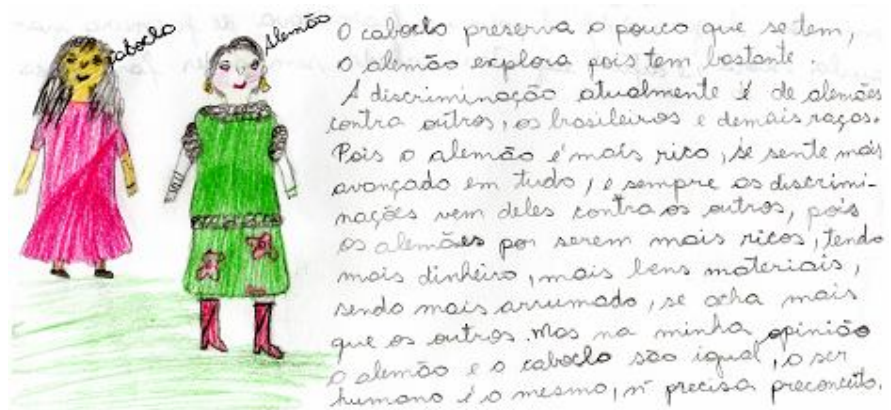 caboclo
Alemão
O caboclo preserva o pouco que se tem,
O alemão explora pois tem bastante.
A discriminação atualmente é de alemães
contra outros, os brasileiros e demais raças.
Pois o alemão é mais rico, se sente mais
avançado em tudo, e sempre as discrimi-
nações vem deles contra os outros, pois
os alemães por serem mais ricos, tendo
mais dinheiro, mais bens materiais,
sendo mais arrumado, se acha mais
que os outros. Mas na minha opinião
o alemão e o caboclo são igual, o ser
humano é o mesmo, ñ precisa preconceito.